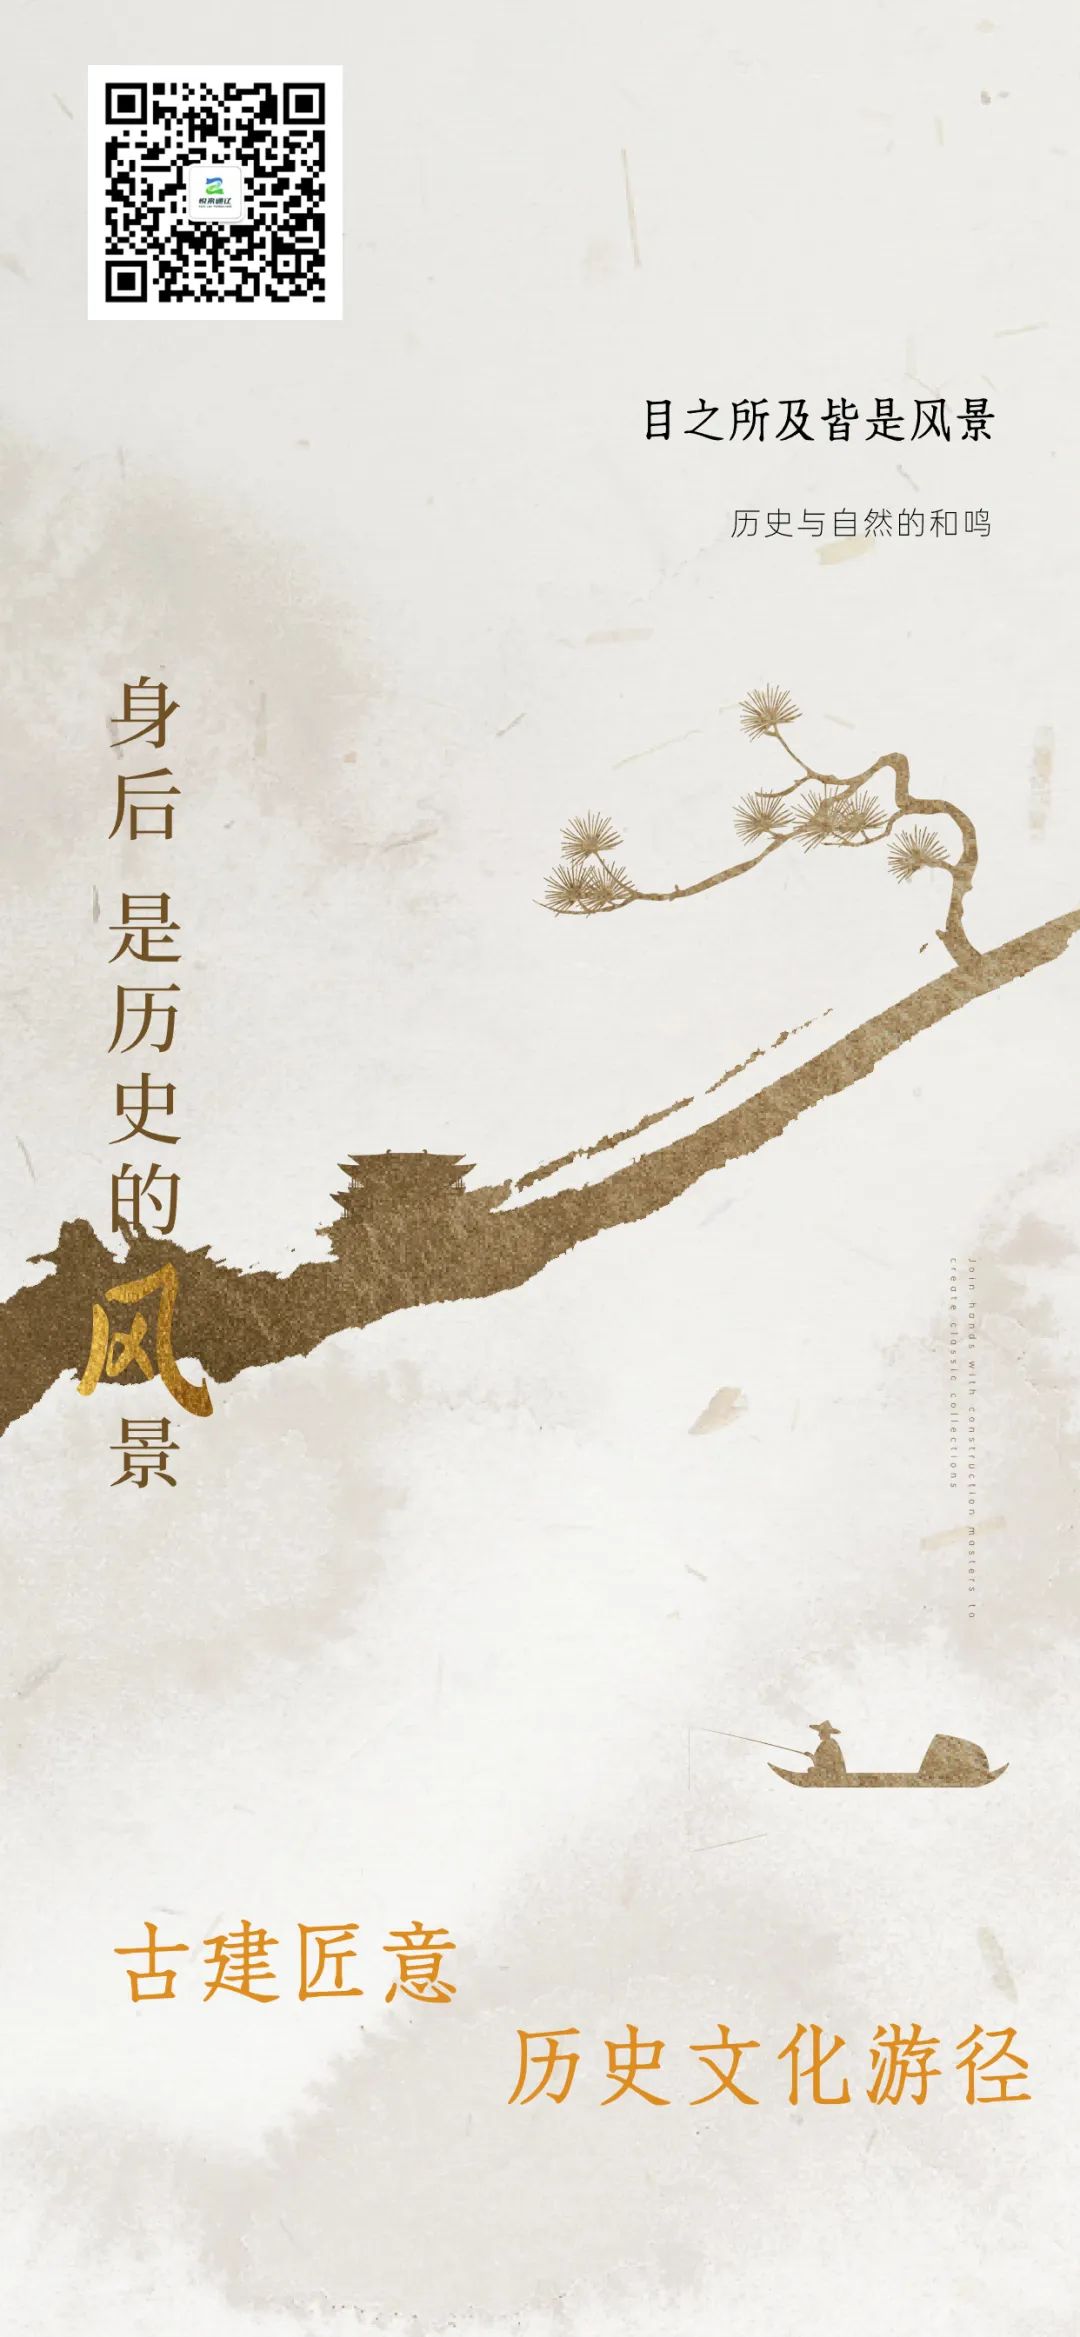 悦来通辽
目之所及皆是风景
历史与自然的和鸣
身后 是历史的风景
Join hands with construction masters to
create classic collections
古建匠意
历史文化游径